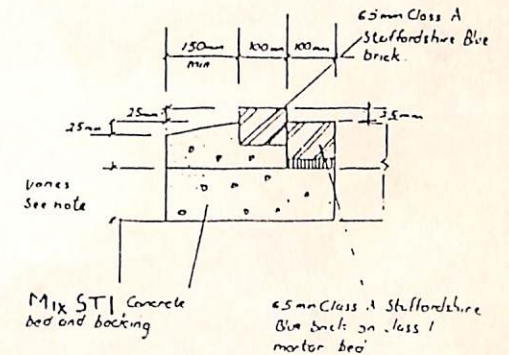 65mm Class A
Staffordshire Blue
brick.
150mm
min
100mm
100mm
25mm
25mm
35mm
varies
see note
Mix ST1 Concrete
bed and backing
65mm Class A Staffordshire
Blue brick on class 1
mortar bed